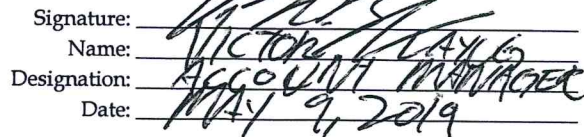 Signature:
Name: VICTOR
Designation: ACCOUNT MANAGER
Date: MAY 9, 2019